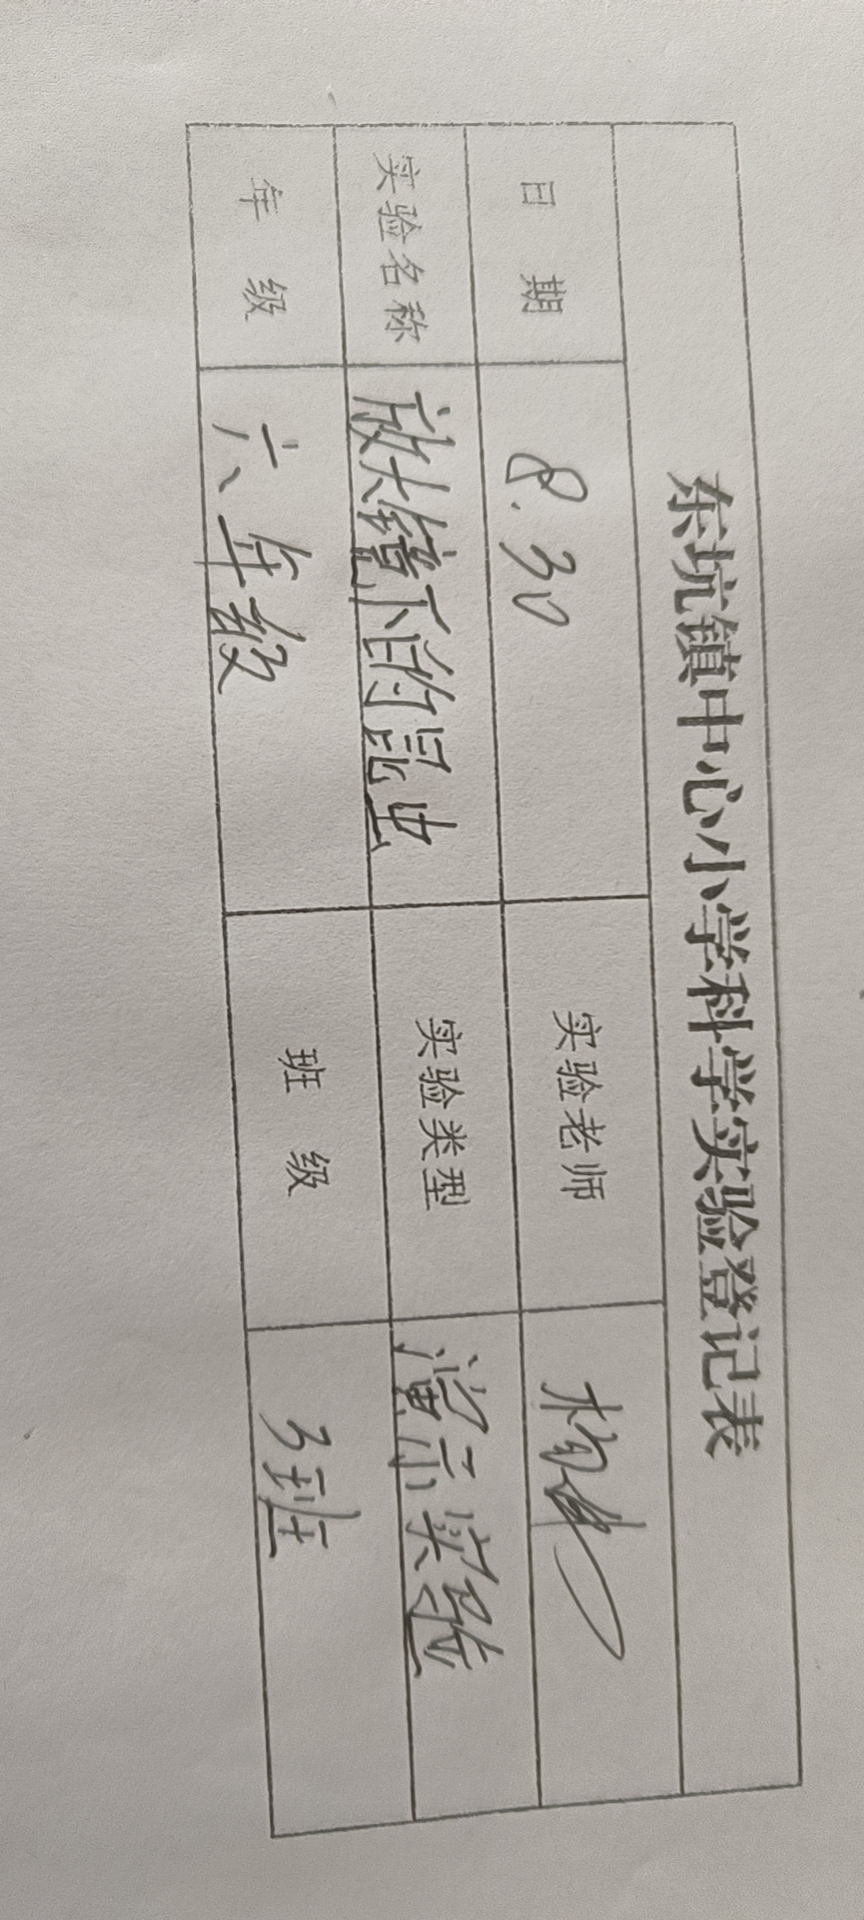 东坑镇中心小学科学实验登记表
日 期 8.30 实验老师
实验名称 放大镜下的昆虫 实验类型 演示实验
年 级 六年级 班 级 3班